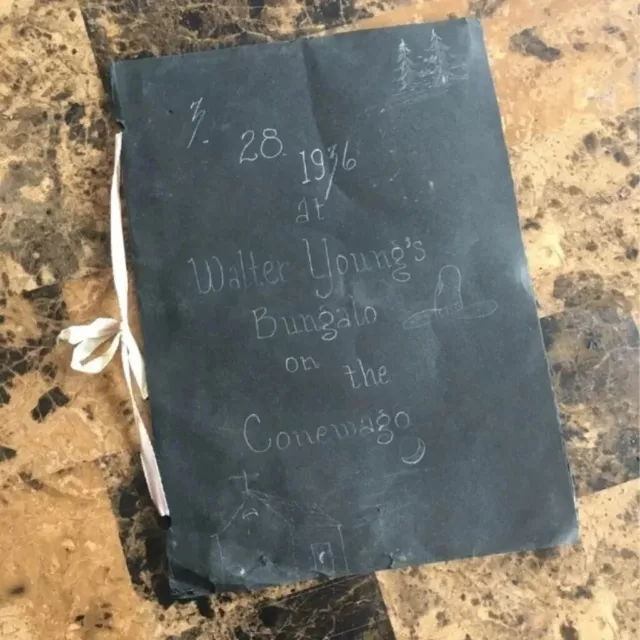 28
at
Walter Young's
Bungalo
on the
Conewago